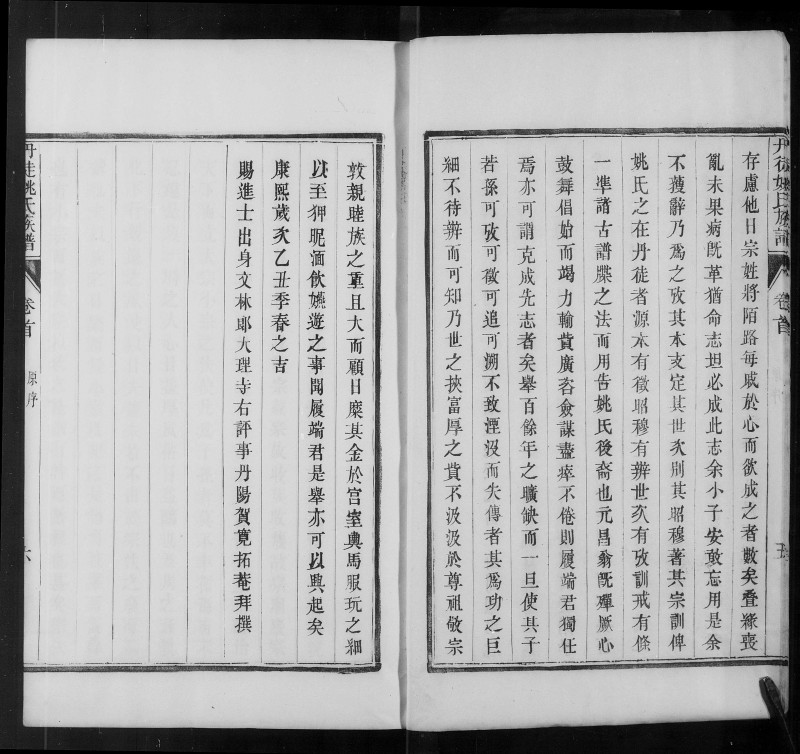 丹徒姚氏族譜
卷首
五
存慮他日宗姓將陌路每戚於心而欲成之者數矣疊繇喪
亂未果病旣革猶命志坦必成此志余小子安敢忘用是余
不獲辭乃爲之攷其本支定其世次別其昭穆著其宗訓俾
姚氏之在丹徒者源本有徵昭穆有辨世次有攷訓戒有條
一準諸古譜牒之法而用告姚氏後裔也元昌翁旣殫厥心
鼓舞倡始而竭力輸貲廣咨僉謀盡瘁不倦則履端君獨任
焉亦可謂克成先志者矣舉百餘年之曠缺而一旦使其子
若孫可攷可徵可追可溯不致湮沒而失傳者其爲功之巨
細不待辨而可知乃世之挾富厚之貲不汲汲於尊祖敬宗
敦親睦族之重且大而顧日糜其金於宫室輿馬服玩之細
以至狎昵湎飮嬿遊之事聞履端君是舉亦可以興起矣
康熙歲次乙丑季春之吉
賜進士出身文林郎大理寺右評事丹陽賀寛拓菴拜撰
丹徒姚氏族譜
卷首
原序
六